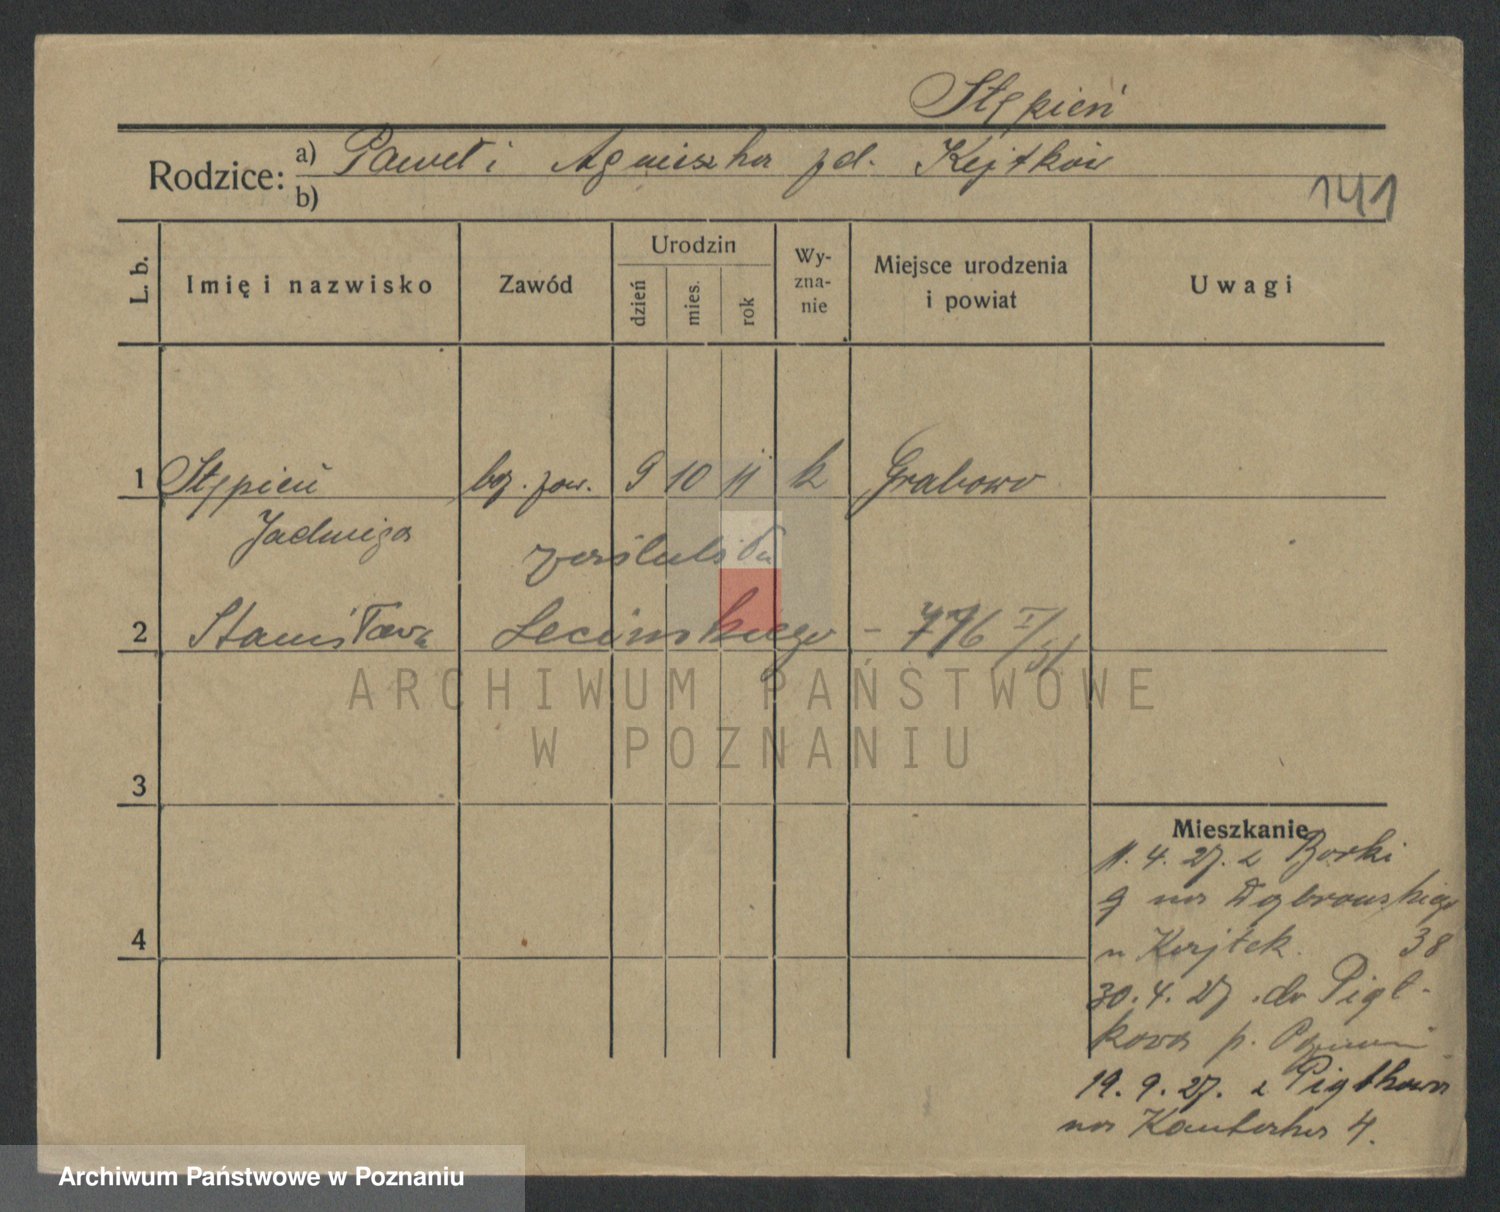 Stępień
Rodzice: a) Paweł i Agnieszka zd. Kejtków
b)
141
L. b. Imię i nazwisko Zawód Urodzin dzień mies. rok Wy-zna-nie Miejsce urodzenia i powiat Uwagi
1 Stępień bez. zaw. 9 10 11 k Grabowo
Jadwiga zaślubiła
2 Stanisława - 776 I/31
ARCHIWUM PAŃSTWOWE
W POZNANIU
3
Mieszkanie
11. 4. 27. z Borki
na Dąbrowskiego
4
u 38
30. 4. 27. do Piąt-
kowa p.
19. 9. 27. z Piątkowa
na 4.
Archiwum Państwowe w Poznaniu